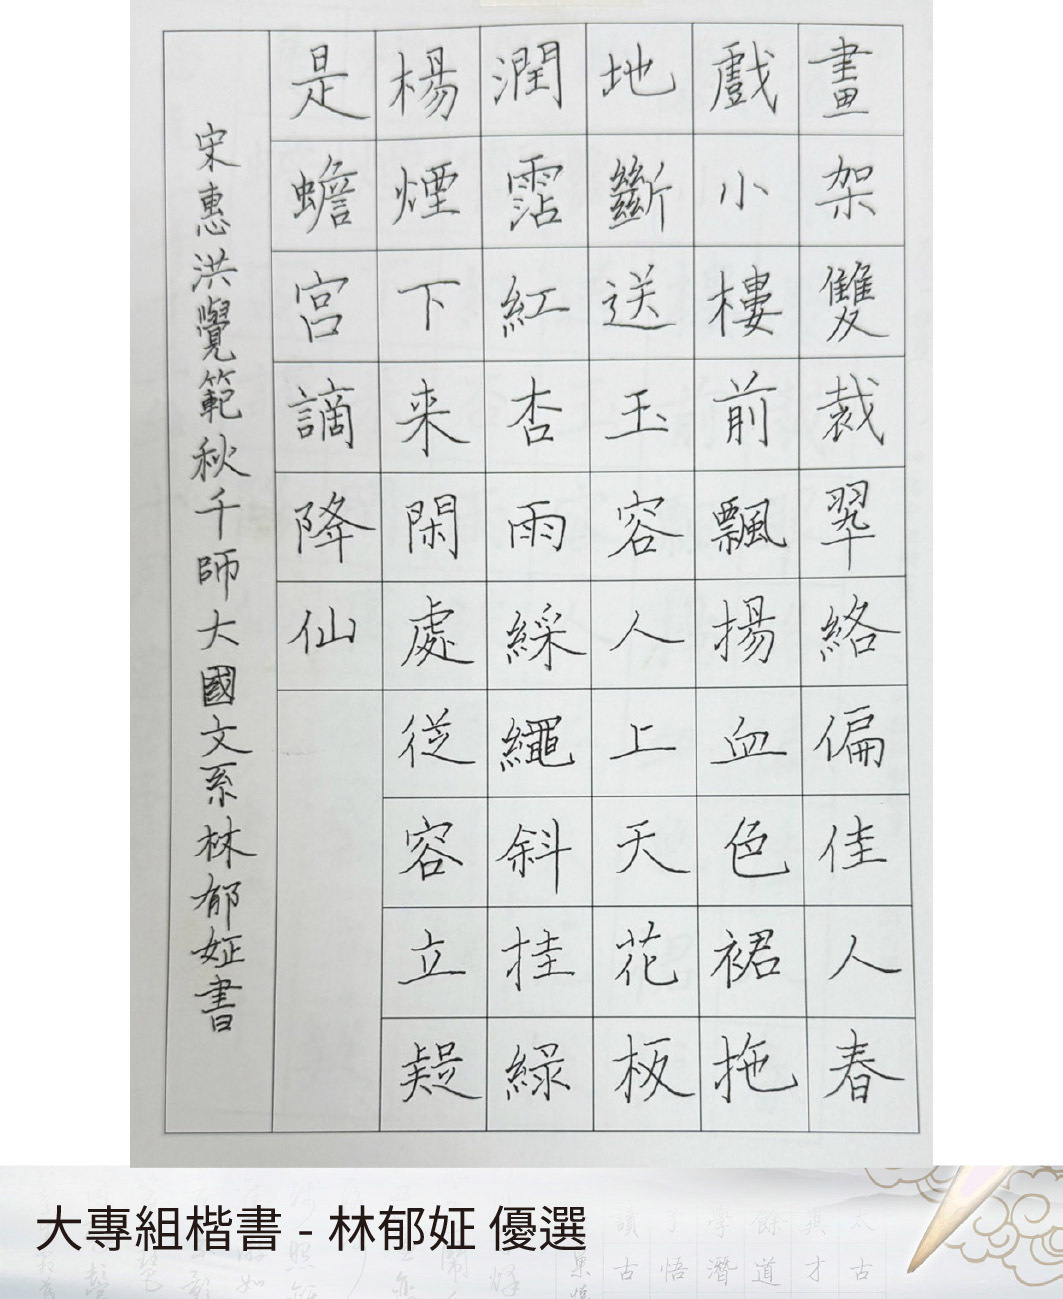 畫架雙裁翠絡偏佳人春
戲小樓前飄揚血色裙拖
地斷送玉容人上天花板
潤霑紅杏雨綵繩斜挂綠
楊煙下来閑處從容立疑
是蟾宮謫降仙
宋惠洪覺範秋千師大國文系林郁姃書
大專組楷書 - 林郁姃 優選